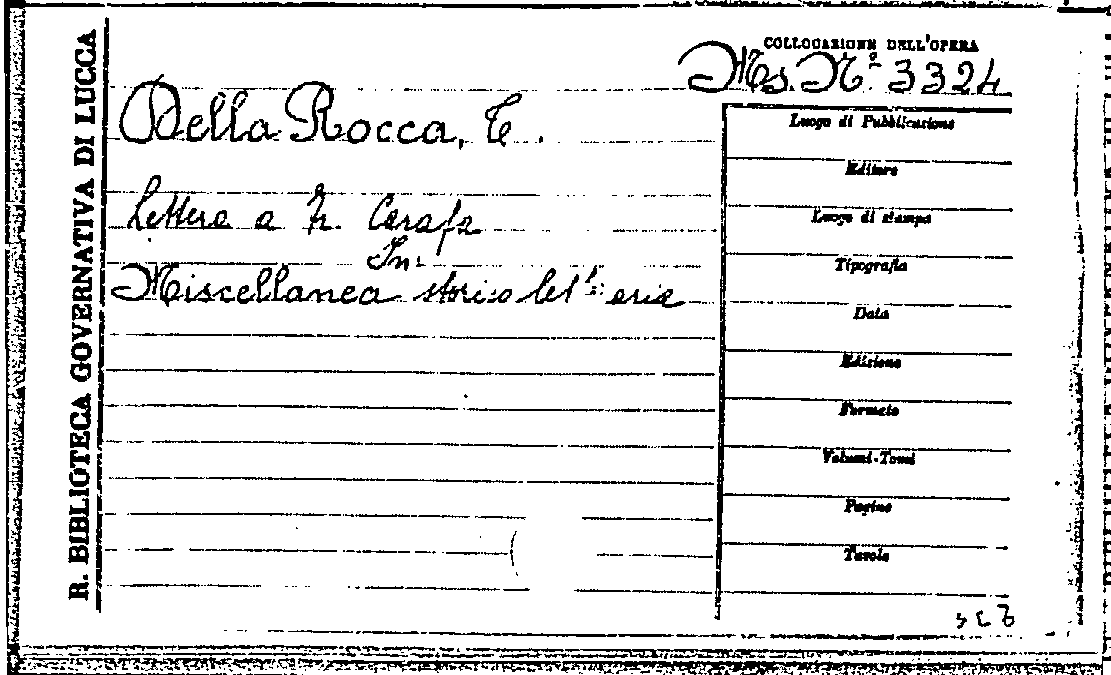 R. BIBLIOTECA GOVERNATIVA DI LUCCA
COLLOCAZIONE DELL'OPERA
Ms. Nº 3324
Della Rocca, C.
Lettera a Carafa
In:
Miscellanea storico let aria
Luogo di Pubblicazione
Editore
Luogo di stampa
Tipografia
Data
Edizione
Formato
Volumi-Tomi
Pagine
Tavole